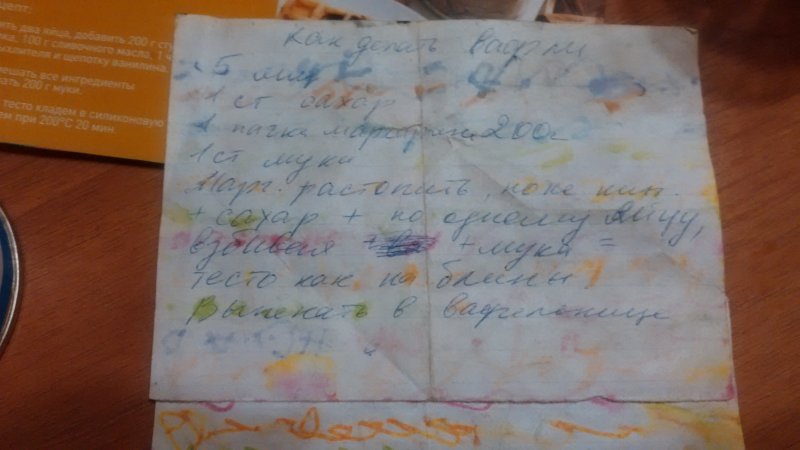 цепт:
ить два яйца, добавить 200 г сгу
ка, 100 г сливочного масло, 1 ч
ыхлителя и щепотку ванилина.
мешать все ингредиенты
ать 200 г муки.
тесто кладем в силиконовую
ем при 200°С 20 мин.
Как делать вафли
5 яиц
1 ст сахар
1 пачка маргарина 200г
1 ст муки
Марг. растопить,
+ сахар + по одному яйцу,
взбивая + мука =
тесто как на блины.
Выпекать в вафельнице